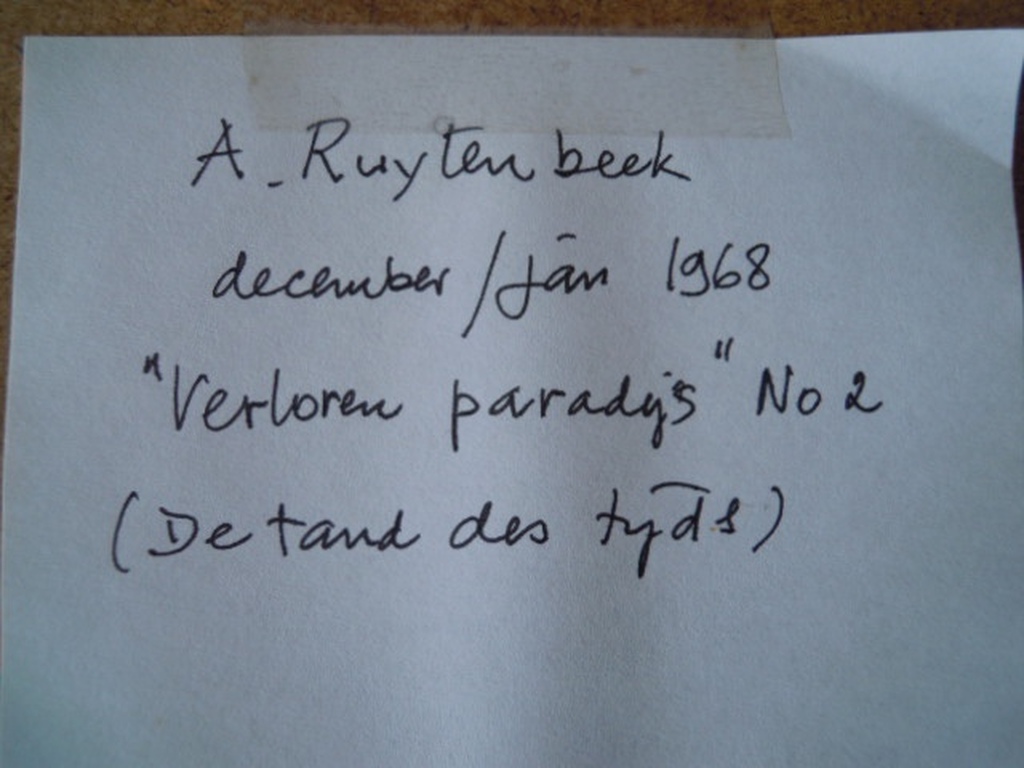 A. Ruytenbeek
december/jan 1968
"Verloren paradijs" No 2
(De tand des tyds)